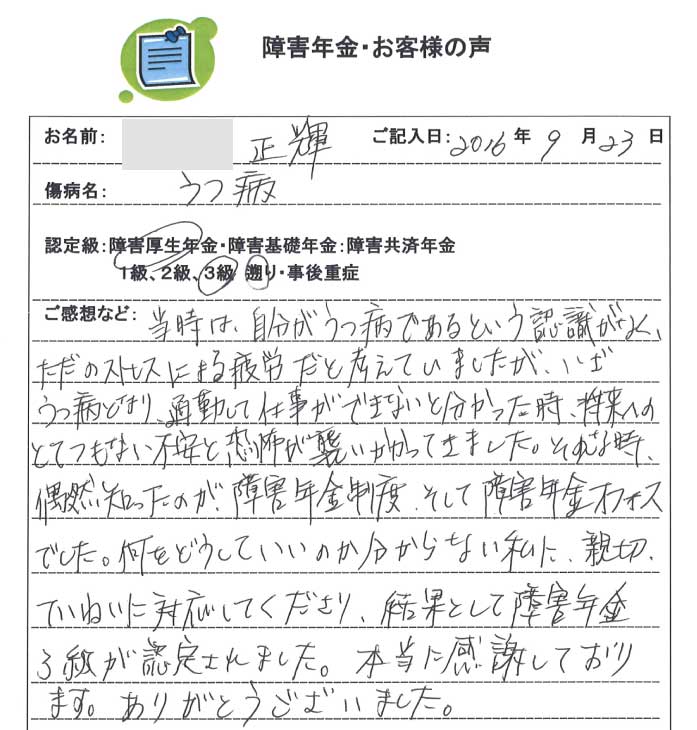 障害年金・お客様の声
お名前： 正輝 ご記入日：2016年9月23日
傷病名： うつ病
認定級：障害厚生年金・障害基礎年金：障害共済年金
1級、2級、3級 遡り・事後重症
ご感想など： 当時は、自分がうつ病であるという認識がなく、
ただのストレスによる疲労だと考えていましたが、いざ
うつ病となり、通勤して仕事ができないと分かった時、将来への
とてつもない不安と恐怖が襲いかかってきました。そんな時、
偶然知ったのが、障害年金制度、そして障害年金オフィス
でした。何をどうしていいのか分からない私に、親切、
ていねいに対応してくださり、結果として障害年金
3級が認定されました。本当に感謝しており
ます。ありがとうございました。